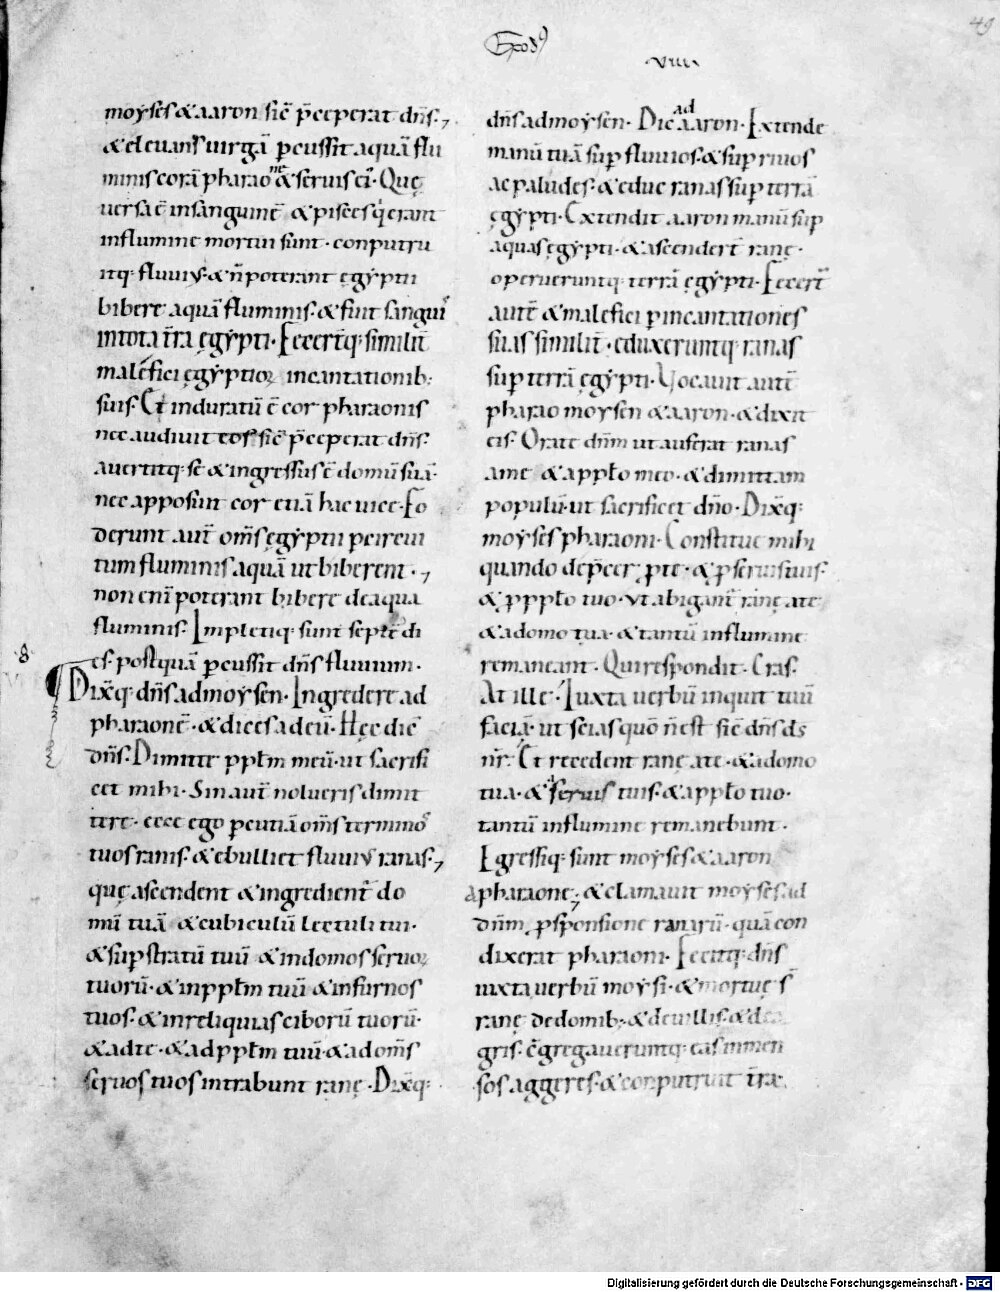 49
Exod9
VIII
moyses & aaron sic̄ p̄ceperat dn̄s,
& eleuans uirgā percussit aquā flu
minis corā pharaone & seruis ei'. Quę
uersa ē in sanguinē & pisces q̇ erant
in flumine mortui sunt. conputru
itq: fluuius. & n̄ poterant ęgẏptii
bibere aquā fluminis. & fuit sanguis
in tota t̄ra ęgẏpti. Fecer̄tq: similit̄
malefici ęgẏptioꝝ incantationib:
suis. Et induratū ē cor pharaonis
nec audiuit eos sic̄ p̄ceperat dn̄s.
auertitq: se & ingressus ē domū suā.
nec apposuit cor etiā hac uice. Fo
derunt aut̄ om̄s ęgẏptii per circui
tum fluminis aquā ut biberent.,
non eni̅ poterant bibere de aqua
fluminis. Impletiq: sunt septē di
es. postquā ꝑcussit dn̄s fluuium.
8
Dixq̄: dn̄s ad moẏsen. Ingredere ad
pharaonē. & dices ad eū. Hęc dic̄
dn̄s. Dimitte ppłm meū. ut sacrifi
cet mihi. Sin aut̄ nolueris dimit
tere. ecce ego ꝑcutiā om̄s terminos
tuos ranis. & ebulliet fluuius ranas.,
quę ascendent & ingredient̄ do
mū tuā & cubiculū lectuli tui.
& suꝑ stratū tuū & in domos seruoꝝ
tuorū. & in ppłm tuū & in furnos
tuos. & in reliquias ciborū tuorū.
& ad te. & ad ppłm tuū. & ad om̄s
seruos tuos intrabunt ranę. Dixq̄:
dn̄s ad moẏsen. Dic ad aaron. Extende
manū tuā suꝑ fluuios. & suꝑ riuos
ac paludes. & educ ranas suꝑ terrā
ęgẏpti. Extendit aaron manū suꝑ
aquas ęgẏpti. & ascender̄t ranę.
operueruntq: terrā ęgẏpti. Fecer̄t
aut̄ & malefici ꝑ incantationes
suas similit̄. eduxeruntq: ranas
suꝑ terrā ęgẏpti. Vocauit aut̄
pharao moẏsen & aaron. & dixit
eis. Orate dn̄m ut auferat ranas
a me & a ppło meo. & dimittam
populū. ut sacrificet dn̄o. Dixq̄:
moẏses pharaoni. Constitue mihi
quando dep̄cer ꝓ te. & ꝓ seruis tuis.
& ꝓ ppło tuo. ut abigant̄ ranę a te
& a domo tua. & tantū in flumine
remaneant. Qui respondit. Cras.
At ille. Iuxta uerbū inquit tuū
faciā. ut scias quō n̄ est sic̄ dn̄s ds
nr̄. Et recedent ranę a te. & a domo
tua. & a seruis tuis. & a ppło tuo.
tantū in flumine remanebunt.
Egressiq: sunt moẏses & aaron
a pharaone, & clamauit moẏses ad
dn̄m, ꝓ sponsione ranarū. quā con
dixerat pharaoni. Fecitq: dn̄s
iuxta uerbū moẏsi. & mortuę s̄
ranę de domib:. & de uillis. & de a
gris. c̄gregaueruntq: eas in men
sos aggeres. & conputruit t̄ra.
Digitalisierung gefördert durch die Deutsche Forschungsgemeinschaft - DFG